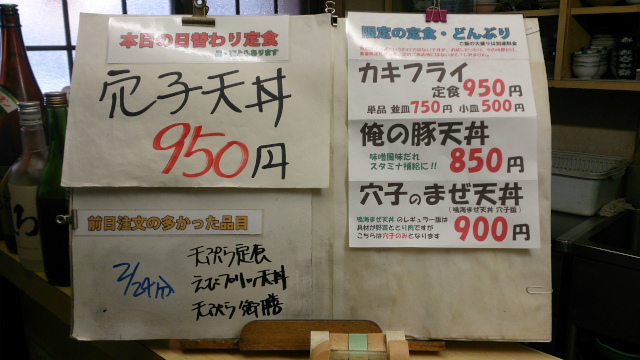 本日の日替わり定食
穴子天丼
950円
前日注文の多かった品目
2/29分
天ぷら定食
えびプリッ天丼
限定の定食・どんぶり
ご飯の大盛りは別途料金
カキフライ
定食 950円
単品 並皿750円 小皿500円
俺の豚天丼
味噌風味だれ
スタミナ補給に!!
850円
穴子のまぜ天丼
(鳴海まぜ天丼 穴子版)
鳴海まぜ天丼 のレギュラー版は
具材が野菜ととり肉ですが
こちらは穴子のみとなります
900円